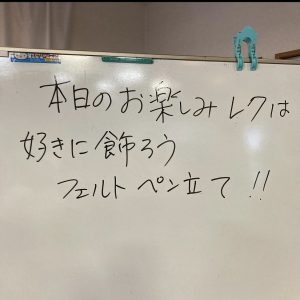 本日のお楽しみレクは
好きに飾ろう
フェルトペン立て!!